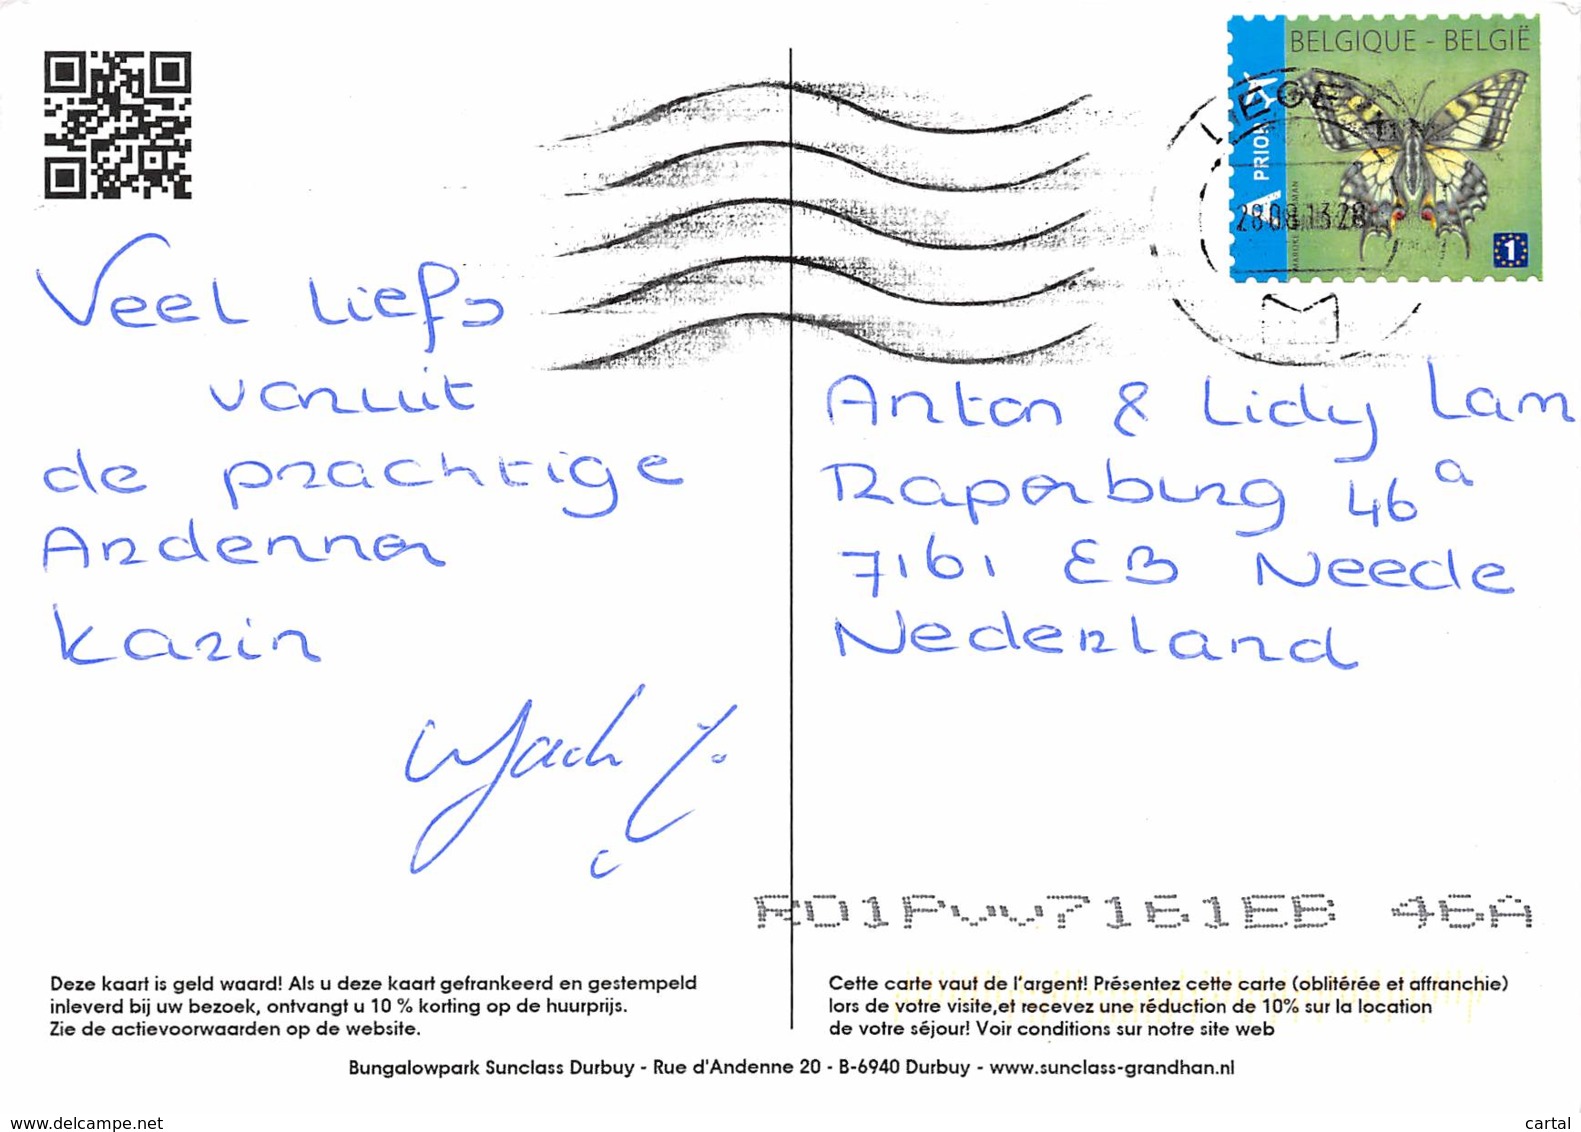 BELGIQUE - BELGIË
A PRIOR
LIEGE X
28 08 13 28
1
Veel liefs
vanuit
de prachtige
Ardennen
Karin
Anton & Lidy Lam
Raperburg 46a
7161 EB Neede
Nederland
RD1Pvvv7161EB 46A
Deze kaart is geld waard! Als u deze kaart gefrankeerd en gestempeld
inleverd bij uw bezoek, ontvangt u 10 % korting op de huurprijs.
Zie de actievoorwaarden op de website.
Cette carte vaut de l'argent! Présentez cette carte (oblitérée et affranchie)
lors de votre visite,et recevez une réduction de 10% sur la location
de votre séjour! Voir conditions sur notre site web
Bungalowpark Sunclass Durbuy - Rue d'Andenne 20 - B-6940 Durbuy - www.sunclass-grandhan.nl
www.delcampe.net
cartal